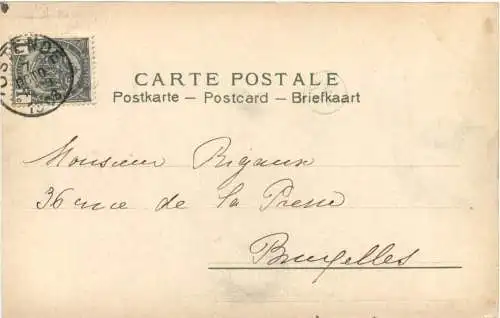 OSTENDE
CARTE POSTALE
Postkarte – Postcard – Briefkaart
Monsieur Rigaux
36 rue de la Presse
Bruxelles